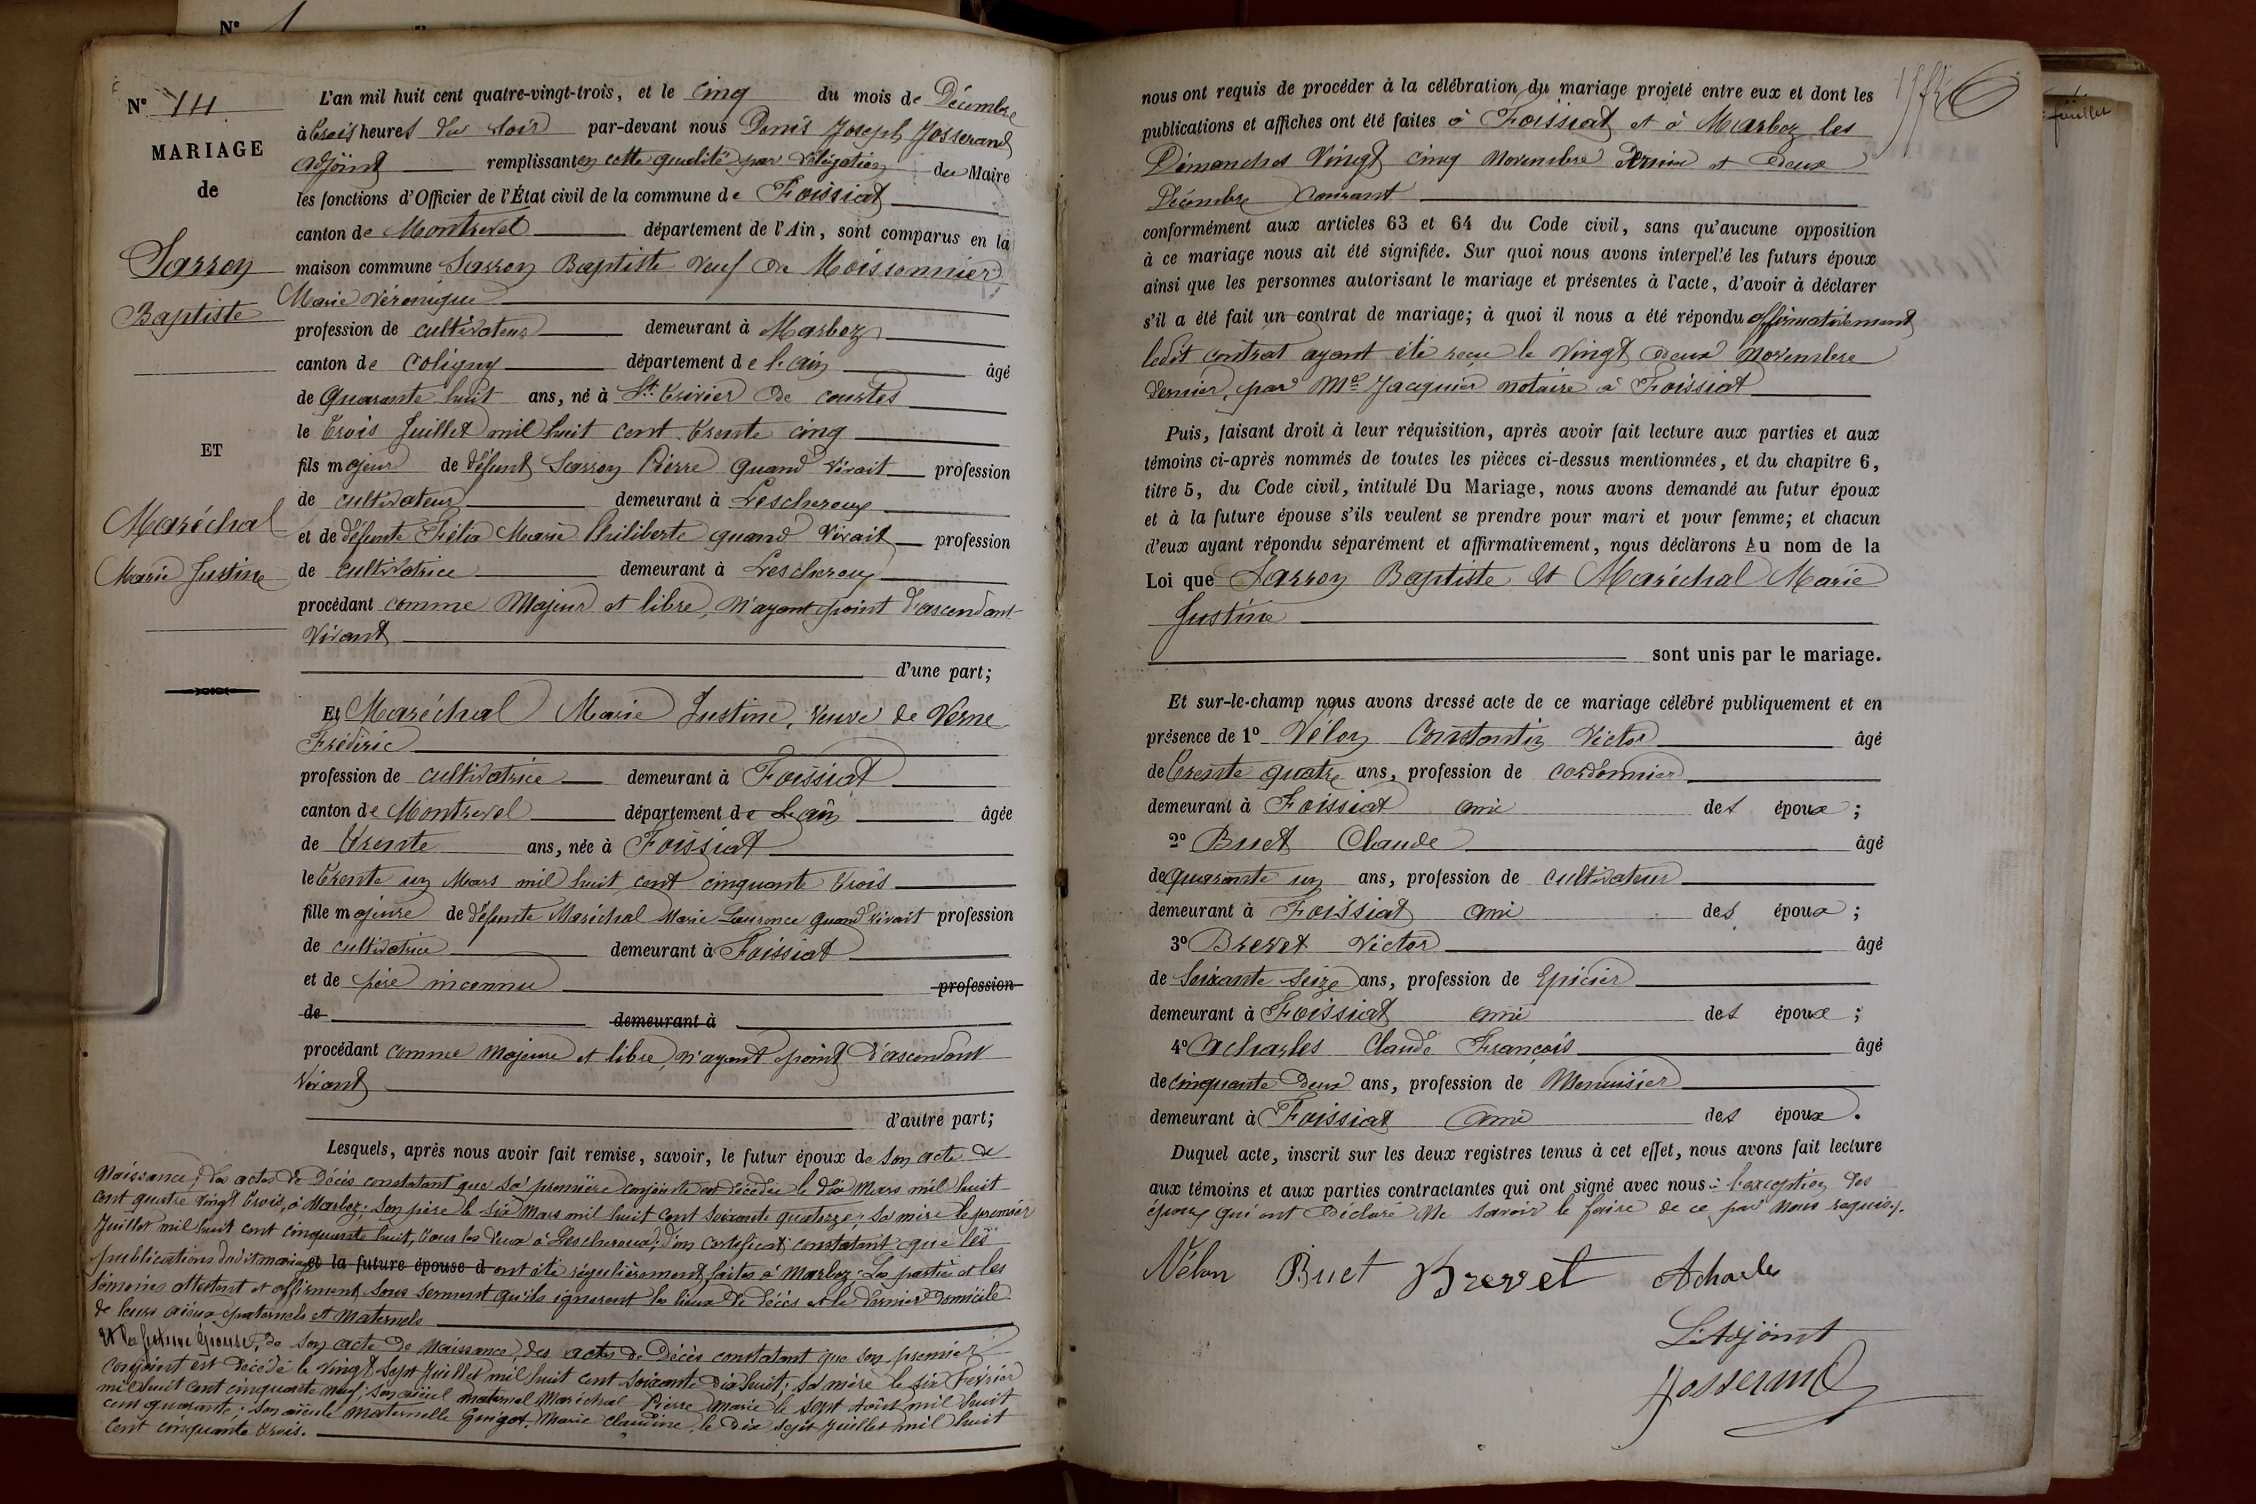 N° 14
MARIAGE
de
Sarron
Baptiste
ET
Maréchal
Marie Justine
L'an mil huit cent quatre-vingt-trois, et le cinq du mois de Décembre
à trois heures du soir par-devant nous Denis Joseph Josserand
adjoint remplissant en cette qualité par délégation du Maire
les fonctions d'Officier de l'État civil de la commune de Foissiat
canton de Montrevel département de l'Ain, sont comparus en la
maison commune Sarron Baptiste veuf de Moissonnier
Marie Véronique
profession de cultivateur demeurant à Marboz
canton de Coligny département de l'ain âgé
de quarante huit ans, né à St. Trivier de courtes
le trois Juillet mil huit cent trente cinq
fils majeur de défunt Sarron Pierre quand vivait profession
de cultivateur demeurant à Lescheroux
et de défunte Félix Marie Philiberte quand vivait profession
de cultivatrice demeurant à Lescheroux
procédant comme majeur et libre, n'ayant point d'ascendant
vivant
d'une part;
Et Maréchal Marie Justine, veuve de Verne
Frédéric
profession de cultivatrice demeurant à Foissiat
canton de Montrevel département de L'ain âgée
de trente ans, née à Foissiat
le trente un Mars mil huit cent cinquante trois
fille majeure de défunte Maréchal Marie Laurence quand vivait profession
de cultivatrice demeurant à Foissiat
et de père inconnu profession
de demeurant à
procédant comme majeure et libre, n'ayant point d'ascendant
vivant
d'autre part;
Lesquels, après nous avoir fait remise, savoir, le futur époux de son acte de
naissance; des actes de décès constatant que sa première conjointe est décédée le dix Mars mil huit
cent quatre vingt trois, à Marboz; son père le six Mars mil huit cent soixante quatorze; sa mère le premier
Juillet mil huit cent cinquante huit, tous les deux à Lescheroux; d'un certificat constatant que les
publications dudit mariage et la future épouse d ont été régulièrement faites à Marboz; Les parties et les
témoins attestent et affirment sous serment qu'ils ignorent les lieux de décès et le dernier domicile
de leurs aïeux paternels et maternels
et la future épouse, de son acte de naissance, des actes de décès constatant que son premier
conjoint est décédé le vingt sept Juillet mil huit cent soixante dix huit; sa mère le six Février
mil huit cent cinquante neuf; son aïeul maternel Maréchal Pierre Marie le sept août mil huit
cent quarante; son aïeule maternelle Guigot Marie Claudine, le dix sept Juillet mil huit
cent cinquante trois.
nous ont requis de procéder à la célébration du mariage projeté entre eux et dont les
publications et affiches ont été faites à Foissiat et à Marboz les
Dimanches vingt cinq novembre dernier et deux
Décembre courant
conformément aux articles 63 et 64 du Code civil, sans qu'aucune opposition
à ce mariage nous ait été signifiée. Sur quoi nous avons interpellé les futurs époux
ainsi que les personnes autorisant le mariage et présentes à l'acte, d'avoir à déclarer
s'il a été fait un contrat de mariage; à quoi il nous a été répondu affirmativement
ledit contrat ayant été reçu le vingt deux novembre
dernier, par Me Jacquier notaire à Foissiat
Puis, faisant droit à leur réquisition, après avoir fait lecture aux parties et aux
témoins ci-après nommés de toutes les pièces ci-dessus mentionnées, et du chapitre 6,
titre 5, du Code civil, intitulé Du Mariage, nous avons demandé au futur époux
et à la future épouse s'ils veulent se prendre pour mari et pour femme; et chacun
d'eux ayant répondu séparément et affirmativement, nous déclarons Au nom de la
Loi que Sarron Baptiste et Maréchal Marie
Justine
sont unis par le mariage.
Et sur-le-champ nous avons dressé acte de ce mariage célébré publiquement et en
présence de 1° Vélon Constantin Victor âgé
de trente quatre ans, profession de cordonnier
demeurant à Foissiat ami des époux;
2° Buet Claude âgé
de quarante un ans, profession de cultivateur
demeurant à Foissiat ami des époux;
3° Brevet Victor âgé
de soixante seize ans, profession de Epicier
demeurant à Foissiat ami des époux;
4° Acharles Claude François âgé
de cinquante deux ans, profession de Menuisier
demeurant à Foissiat ami des époux.
Duquel acte, inscrit sur les deux registres tenus à cet effet, nous avons fait lecture
aux témoins et aux parties contractantes qui ont signé avec nous à l'exception des
époux qui ont déclaré ne savoir le faire de ce par nous requis.
Vélon Buet Brevet Acharles
L'Adjoint
Josserand